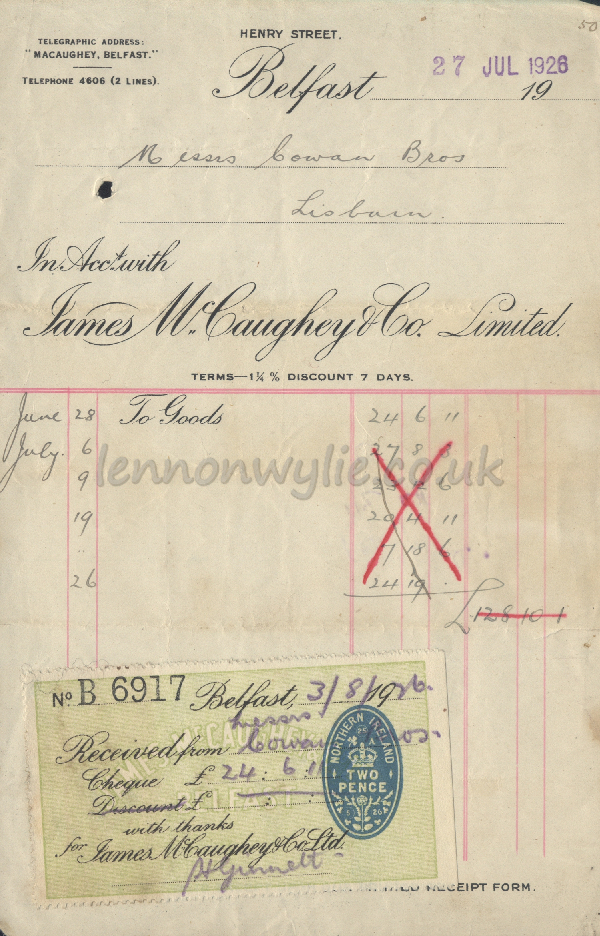 50
HENRY STREET.
TELEGRAPHIC ADDRESS:
"MACAUGHEY, BELFAST."
TELEPHONE 4606 (2 LINES).
27 JUL 1926
Belfast 19
Messrs Cowan Bros
Lisburn.
In Acct. with
James McCaughey & Co. Limited.
TERMS—1¼ % DISCOUNT 7 DAYS.
June 28 To Goods 24 6 11
July. 6 27 8
9 6
19 20 4 11
" 7 18 6
26 24 19 .
£128 10 1
lennonwylie.co.uk
No B 6917 Belfast, 3/8/1926.
Received from Messrs
Cowan Bros.
Cheque £ 24 : 6 : 11
Discount £ : :
with thanks
for James McCaughey & Co Ltd.
NORTHERN IRELAND
TWO
PENCE
RECEIPT FORM.